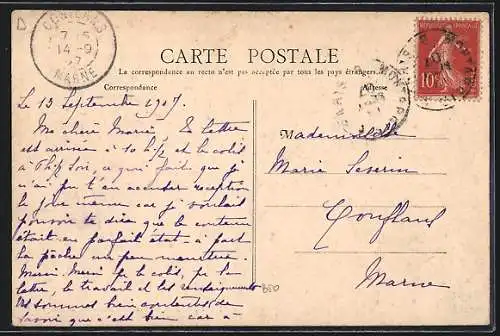 CONFLANS
7-5
14-9
07
MARNE
CARTE POSTALE
La correspondance au recto n'est pas acceptée par tous les pays étrangers.
Correspondance
Adresse
10c
Le 13 Septembre 1907.
Ma chère Marie, ta lettre
est arrivée à 10 h ½ et le colis
à soir, ce qui fait que je
n'ai pu t'en accuser réception
le jour même car je voulais
pouvoir te dire que le contenu
était en parfait état à part
la pêche un peu
Merci, Merci pr le colis, pr la
lettre, le travail et les renseignements
sommes bien contentes de
savoir que c'est bien car à
Mademoiselle
Marie Severin
Conflans
Marne